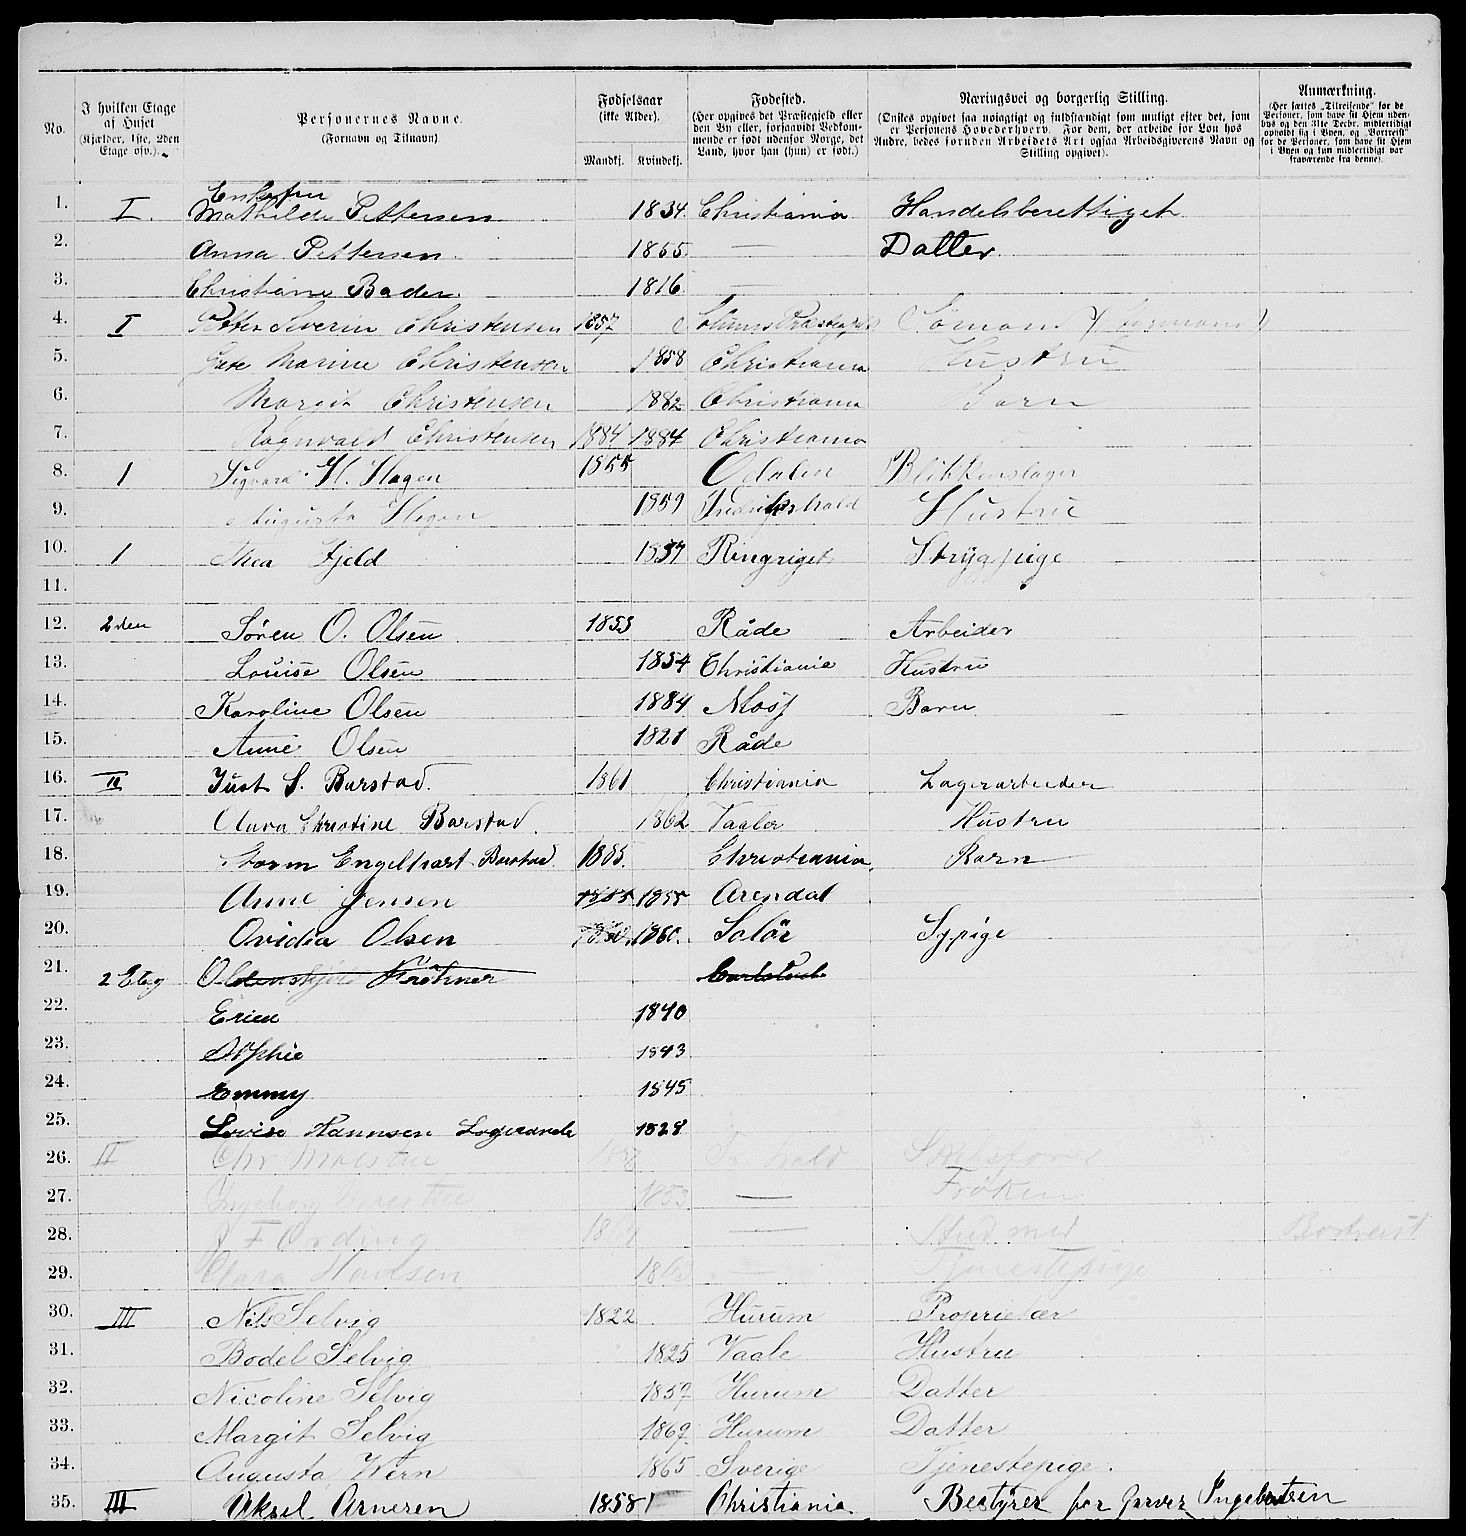 No.
I hvilken Etage af Huset (Kjælder, 1ste, 2den Etage osv.).
Personernes Navne. (Fornavn og Tilnavn)
Fødselsaar (ikke Alder). Mandkj. Kvindekj.
Fødested. (Her opgives det Præstegjeld eller den By eller, forsaavidt Vedkommende er født udenfor Norge, det Land, hvor han (hun) er født.)
Næringsvei og borgerlig Stilling. (Ønskes opgivet saa nøiagtigt og fuldstændigt som muligt efter det, som er Personens Hovederhverv. For dem, der arbeide for Løn hos Andre, bedes foruden Arbeidets Art ogsaa Arbeidsgiverens Navn og Stilling opgivet).
Anmærkning. (Her sættes „Tilreisende“ for de Personer, som have sit Hjem udenbys og den 31te Decbr. midlertidigt opholdt sig i Byen, og „Bortreist“ for de Personer, som have sit Hjem i Byen og kun midlertidigt var fraværende fra denne).
1. I. Enkefru Mathilde Pettersen 1834. Christiania Handelsberettiget
2. Anna Pettersen. 1855. — Datter.
3. Christiane Bader. 1816. —
4. I Petter Severin Christensen 1857 Solums Sømand
5. Marine Christensen 1858 Christiania Hustru
6. Margit Christensen 1882 Christiania Barn
7. Ragnvald Christensen 1884 1884 Christiania
8. 1 Sigvard H. Hagen 1855 Odalen Blikkenslager
9. Augusta Hagen 1859 Fredrikshald Hustru
10. 1 Thea Fjeld 1837 Ringriget Strygepige
11.
12. 2den Søren O. Olsen 1853 Råde Arbeider
13. Louise Olsen 1854 Christiania Hustru
14. Karoline Olsen 1884 Moss Barn
15. Anne Olsen 1821 Råde
16. II Just S. Barstad. 1861 Christiania Lagerarbeider
17. Clara Christine Barstad. 1862 Vaaler Hustru
18. Storm Engelhart Barstad 1885. Christiania. Barn
19. Anne Jensen 1855 1855 Arendal
20. Ovidia Olsen 1860. 1860. Solør Sypige
21. 2 Etag
22. 1840
23. Sophie 1843
24. Emmy 1845
25. Lovise Hannsen Logerande 1828
26. II Chr
27. Ingeborg 1853 — Frøken
28. J F Ording 1864 — Stud med Bortreist
29. Clara Hansen 1863 — Tjenestepige
30. III Nils Selvig 1822 Hurum Proprietær
31. Bodel Selvig 1825 Vaale Hustru
32. Nicoline Selvig 1857 Hurum Datter
33. Margit Selvig 1869 Hurum Datter
34. Augusta Wern 1865 Sverige Tjenestepige.
35. III Aksel Arnesen 1858 1 Christiania. Bestyrer for Garver Ingebretsen